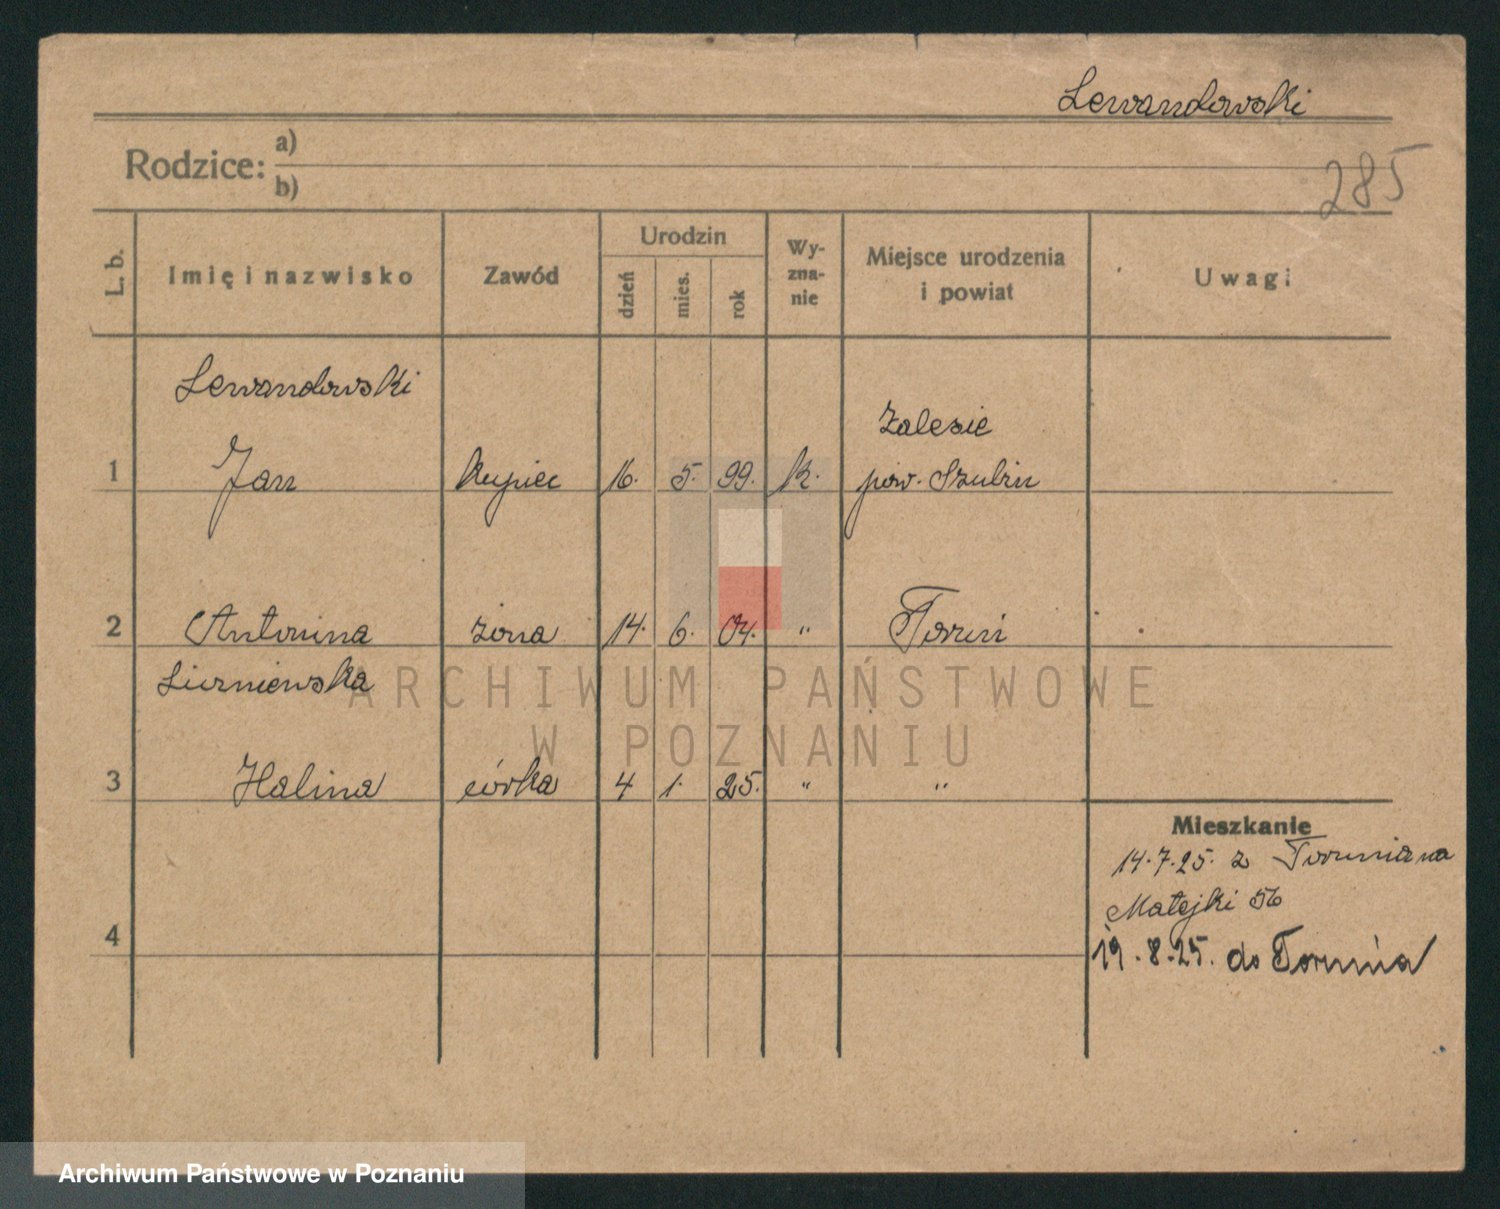 Lewandowski
Rodzice: a)
b)
285
L. b.
Imię i nazwisko
Zawód
Urodzin
dzień
mies.
rok
Wy-
zna-
nie
Miejsce urodzenia
i powiat
Uwagi
Lewandowski
Zalesie
1 Jan kupiec 16. 5. 99. k. pow. Szubin
2 Antonina żona 14. 6. 04. " Toruń
3 Halina córka 4 1. 25. " "
Mieszkanie
14.7.25. z Torunia na
Matejki 56
4
19.8.25. do Torunia
ARCHIWUM PAŃSTWOWE
W POZNANIU
Archiwum Państwowe w Poznaniu